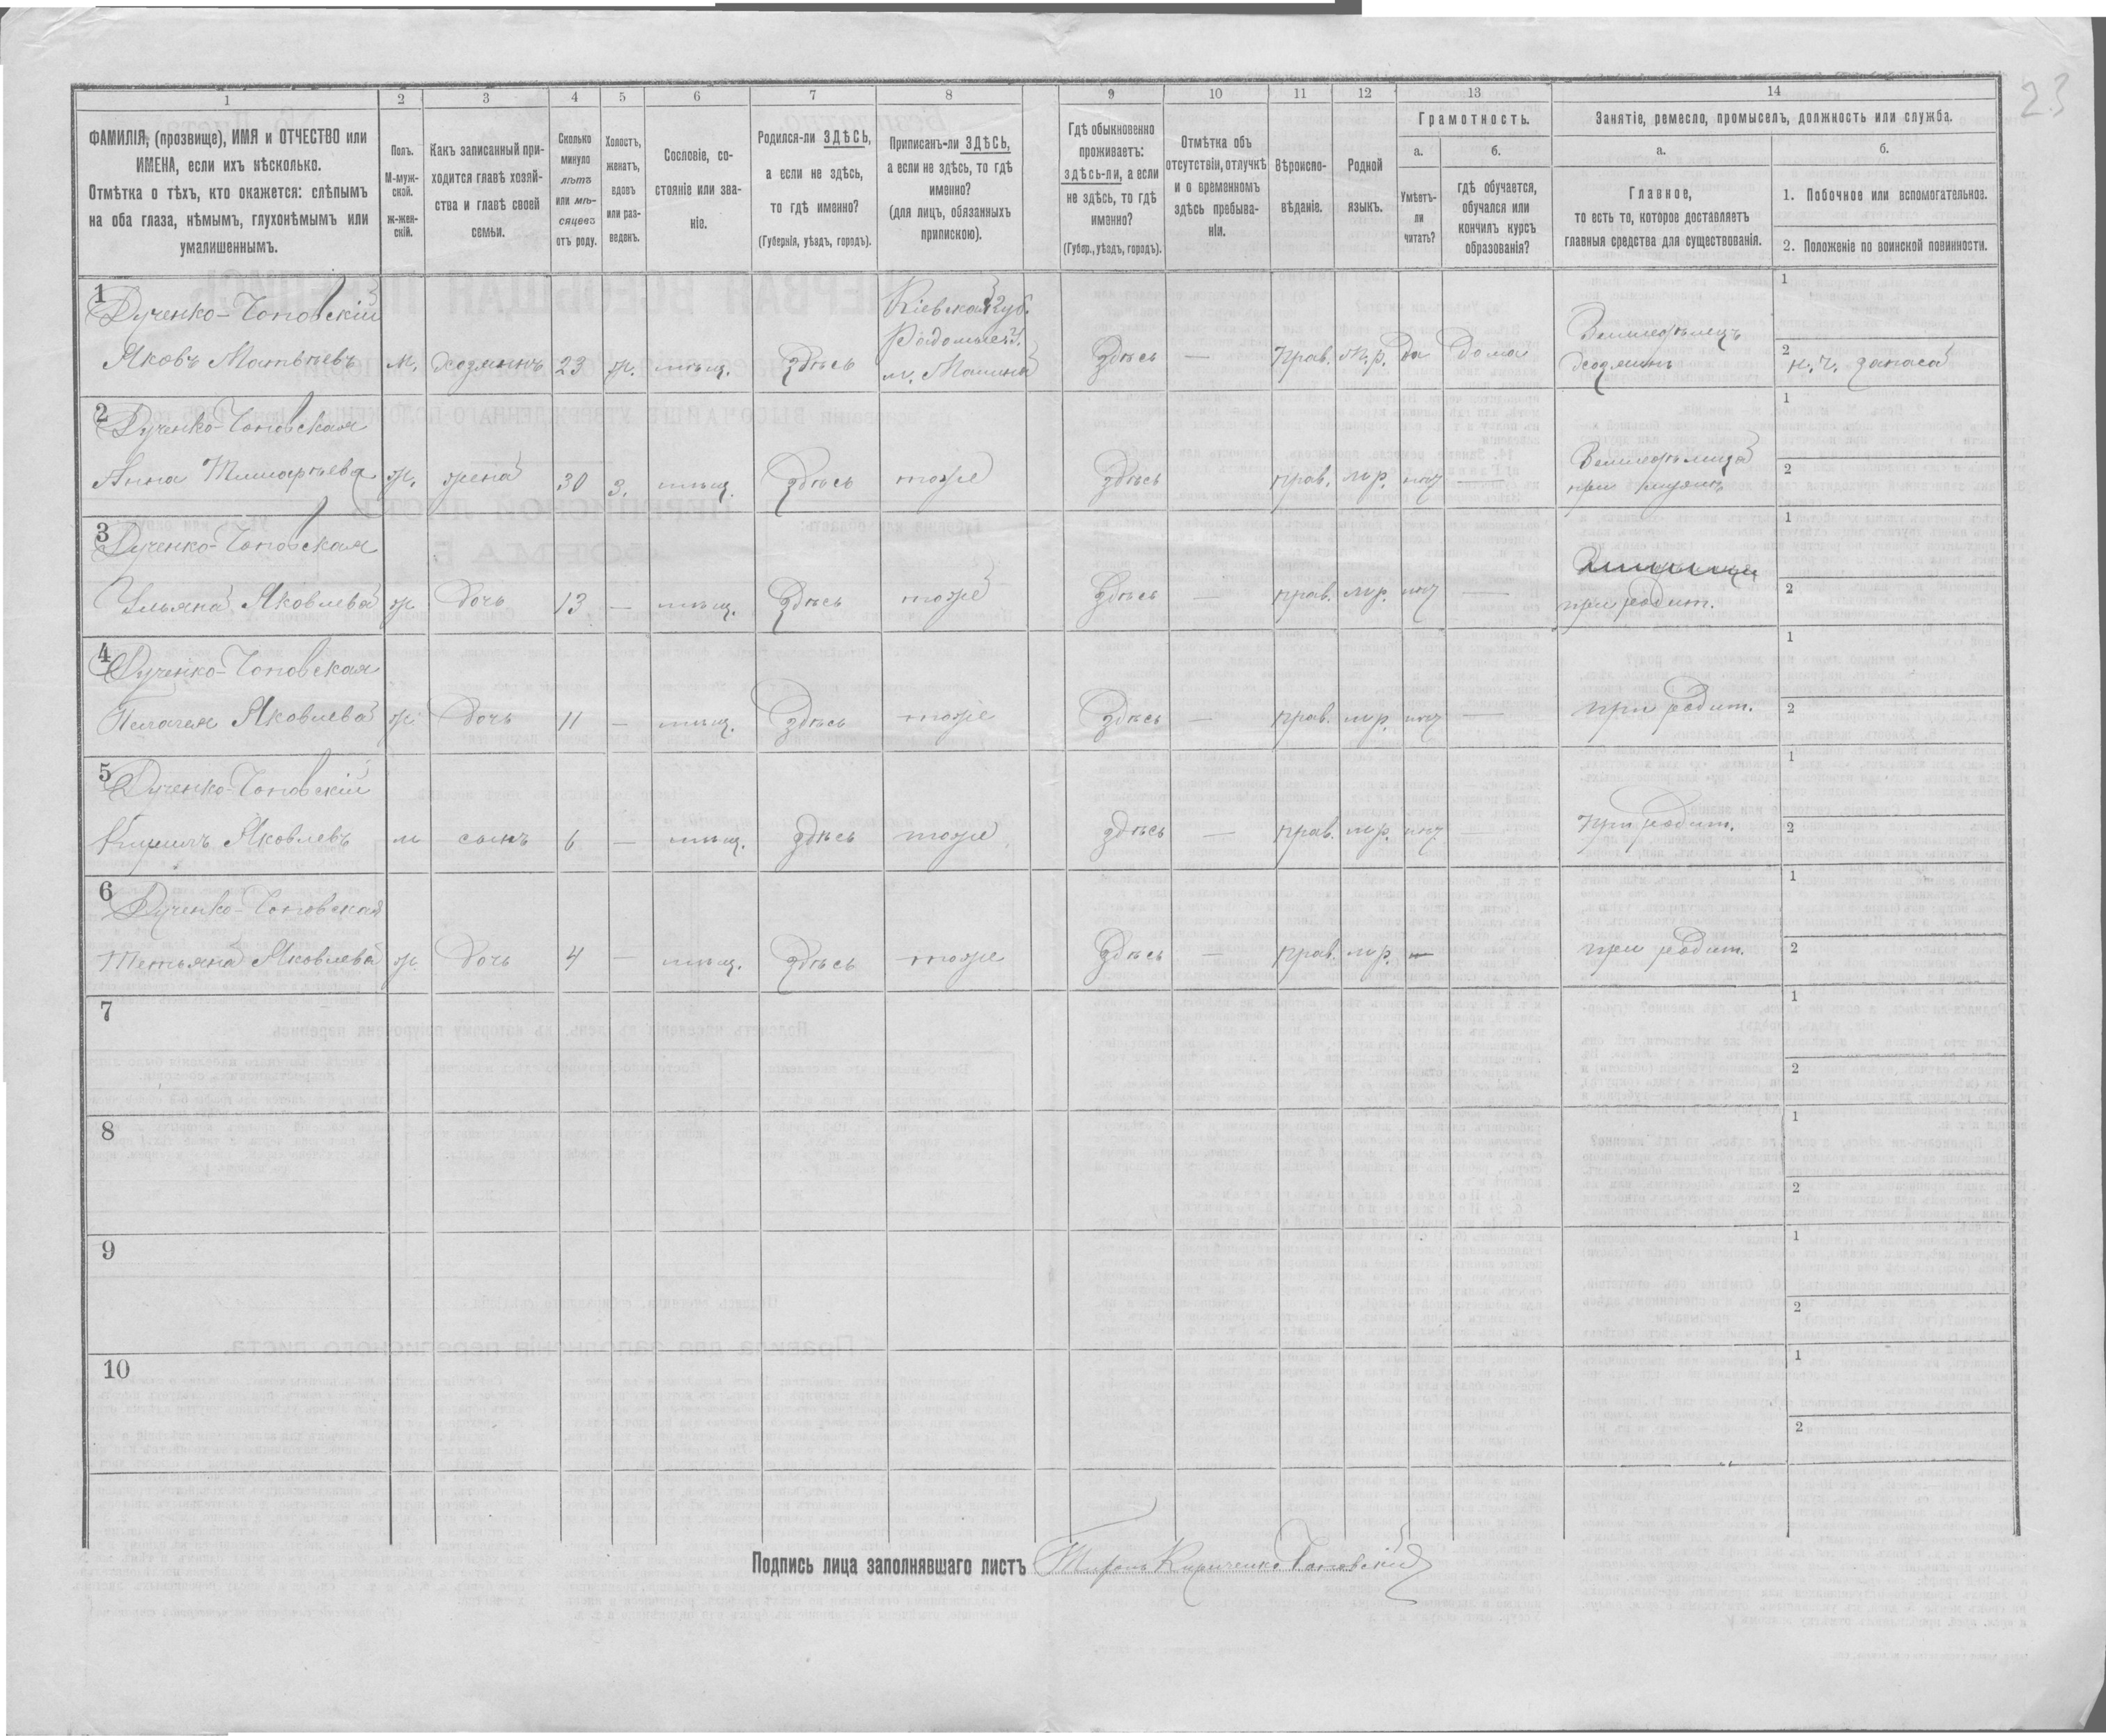 23
1 2 3 4 5 6 7 8 9 10 11 12 13 14
ФАМИЛІЯ, (прозвище), ИМЯ и ОТЧЕСТВО или
ИМЕНА, если ихъ нѣсколько.
Отмѣтка о тѣхъ, кто окажется: слѣпымъ
на оба глаза, нѣмымъ, глухонѣмымъ или
умалишеннымъ.
Полъ.
М-муж-
ской.
ж-жен-
скій.
Какъ записанный при-
ходится главѣ хозяй-
ства и главѣ своей
семьи.
Сколько
минуло
лѣтъ
или мѣ-
сяцевъ
отъ роду.
Холостъ,
женатъ,
вдовъ
или раз-
веденъ.
Сословіе, со-
стояніе или зва-
ніе.
Родился-ли ЗДѢСЬ,
а если не здѣсь,
то гдѣ именно?
(Губернія, уѣздъ, городъ).
Приписанъ-ли ЗДѢСЬ,
а если не здѣсь, то гдѣ
именно?
(для лицъ, обязанныхъ
припискою).
Гдѣ обыкновенно
проживаетъ:
здѣсь-ли, а если
не здѣсь, то гдѣ
именно?
(Губер., уѣздъ, городъ).
Отмѣтка объ
отсутствіи, отлучкѣ
и о временномъ
здѣсь пребыва-
ніи.
Вѣроиспо-
вѣданіе.
Родной
языкъ.
Грамотность.
а.
Умѣетъ-
ли
читать?
б.
гдѣ обучается,
обучался или
кончилъ курсъ
образованія?
Занятіе, ремесло, промыселъ, должность или служба.
а.
Главное,
то есть то, которое доставляетъ
главныя средства для существованія.
б.
1. Побочное или вспомогательное.
2. Положеніе по воинской повинности.
1
Дученко-Чоповскій
Кіевская Губ.
Радомысл. у.
м. Малинъ
Яковъ Матвѣевъ м. хозяинъ 23 ж. мѣщ. здѣсь здѣсь — прав. м.р. да дома
Земледѣлецъ
хозяинъ
1
2 н. ч. запаса
2
Дученко-Чоповская
Анна ж. жена 30 з. мѣщ. здѣсь тоже здѣсь прав. мр. нѣт —
Земледѣлица
при мужѣ
1
2
3
Дученко-Чоповская
Ульяна Яковлева ж дочь 13 — мѣщ. здѣсь тоже здѣсь — прав. мр. нѣт —
при родит.
1
2
4
Дученко-Чоповская
Пелагея Яковлева ж дочь 11 — мѣщ. здѣсь тоже здѣсь — прав. мр. нѣт — при родит.
1
2
5
Дученко-Чоповскій
Кирилъ Яковлевъ м сынъ 6 — мѣщ. здѣсь тоже здѣсь — прав. мр. нѣт — при родит.
1
2
6
Дученко-Чоповская
Тетьяна Яковлева ж дочь 4 — мѣщ. здѣсь тоже здѣсь — прав. мр. — при родит.
1
2
7
1
2
8
1
2
9
1
2
10
1
2
Подпись лица заполнявшаго листъ Кириченко Чоповскій